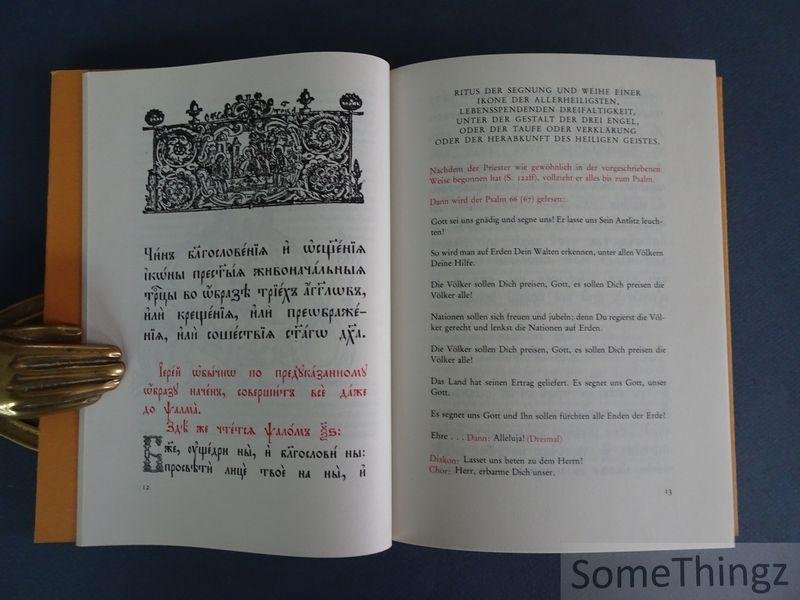 Чи́нъ бл҃гослове́нїѧ и҆ ѡ҆сщ҃е́нїѧ
і҆кѡ́ны прест҃ы́ѧ живонача́льныѧ
трⷪ҇цы во ѡ҆́бразѣ трїе́хъ а҆́гг҃лѡвъ,
и҆лѝ креще́нїѧ, и҆лѝ преѡбраже́-
нїѧ, и҆лѝ соше́ствїѧ ст҃а́гѡ дх҃а.
І҆ере́й ѡ҆бы́чнѡ по предꙋка́занномꙋ
ѡ҆́бразꙋ наче́нъ, соверши́тъ всѐ да́же
до ѱалма̀.
Здѣ́ же чте́тсѧ ѱало́мъ ѯ҃ѕ:
Бж҃е, оу҆ще́дри ны̀, и҆ бл҃гословѝ ны:
просвѣтѝ лицѐ твоѐ на ны̀, и҆
12
RITUS DER SEGNUNG UND WEIHE EINER
IKONE DER ALLERHEILIGSTEN,
LEBENSSPENDENDEN DREIFALTIGKEIT,
UNTER DER GESTALT DER DREI ENGEL,
ODER DER TAUFE ODER VERKLÄRUNG
ODER DER HERABKUNFT DES HEILIGEN GEISTES.
Nachdem der Priester wie gewöhnlich in der vorgeschriebenen
Weise begonnen hat (S. 122ff), vollzieht er alles bis zum Psalm.
Dann wird der Psalm 66 (67) gelesen:
Gott sei uns gnädig und segne uns! Er lasse uns Sein Antlitz leuch-
ten!
So wird man auf Erden Dein Walten erkennen, unter allen Völkern
Deine Hilfe.
Die Völker sollen Dich preisen, Gott, es sollen Dich preisen die
Völker alle!
Nationen sollen sich freuen und jubeln; denn Du regierst die Völ-
ker gerecht und lenkst die Nationen auf Erden.
Die Völker sollen Dich preisen, Gott, es sollen Dich preisen die
Völker alle!
Das Land hat seinen Ertrag geliefert. Es segnet uns Gott, unser
Gott.
Es segnet uns Gott und Ihn sollen fürchten alle Enden der Erde!
Ehre . . . Dann: Alleluja! (Dreimal)
Diakon: Lasset uns beten zu dem Herrn!
Chor: Herr, erbarme Dich unser.
13
SomeThingz